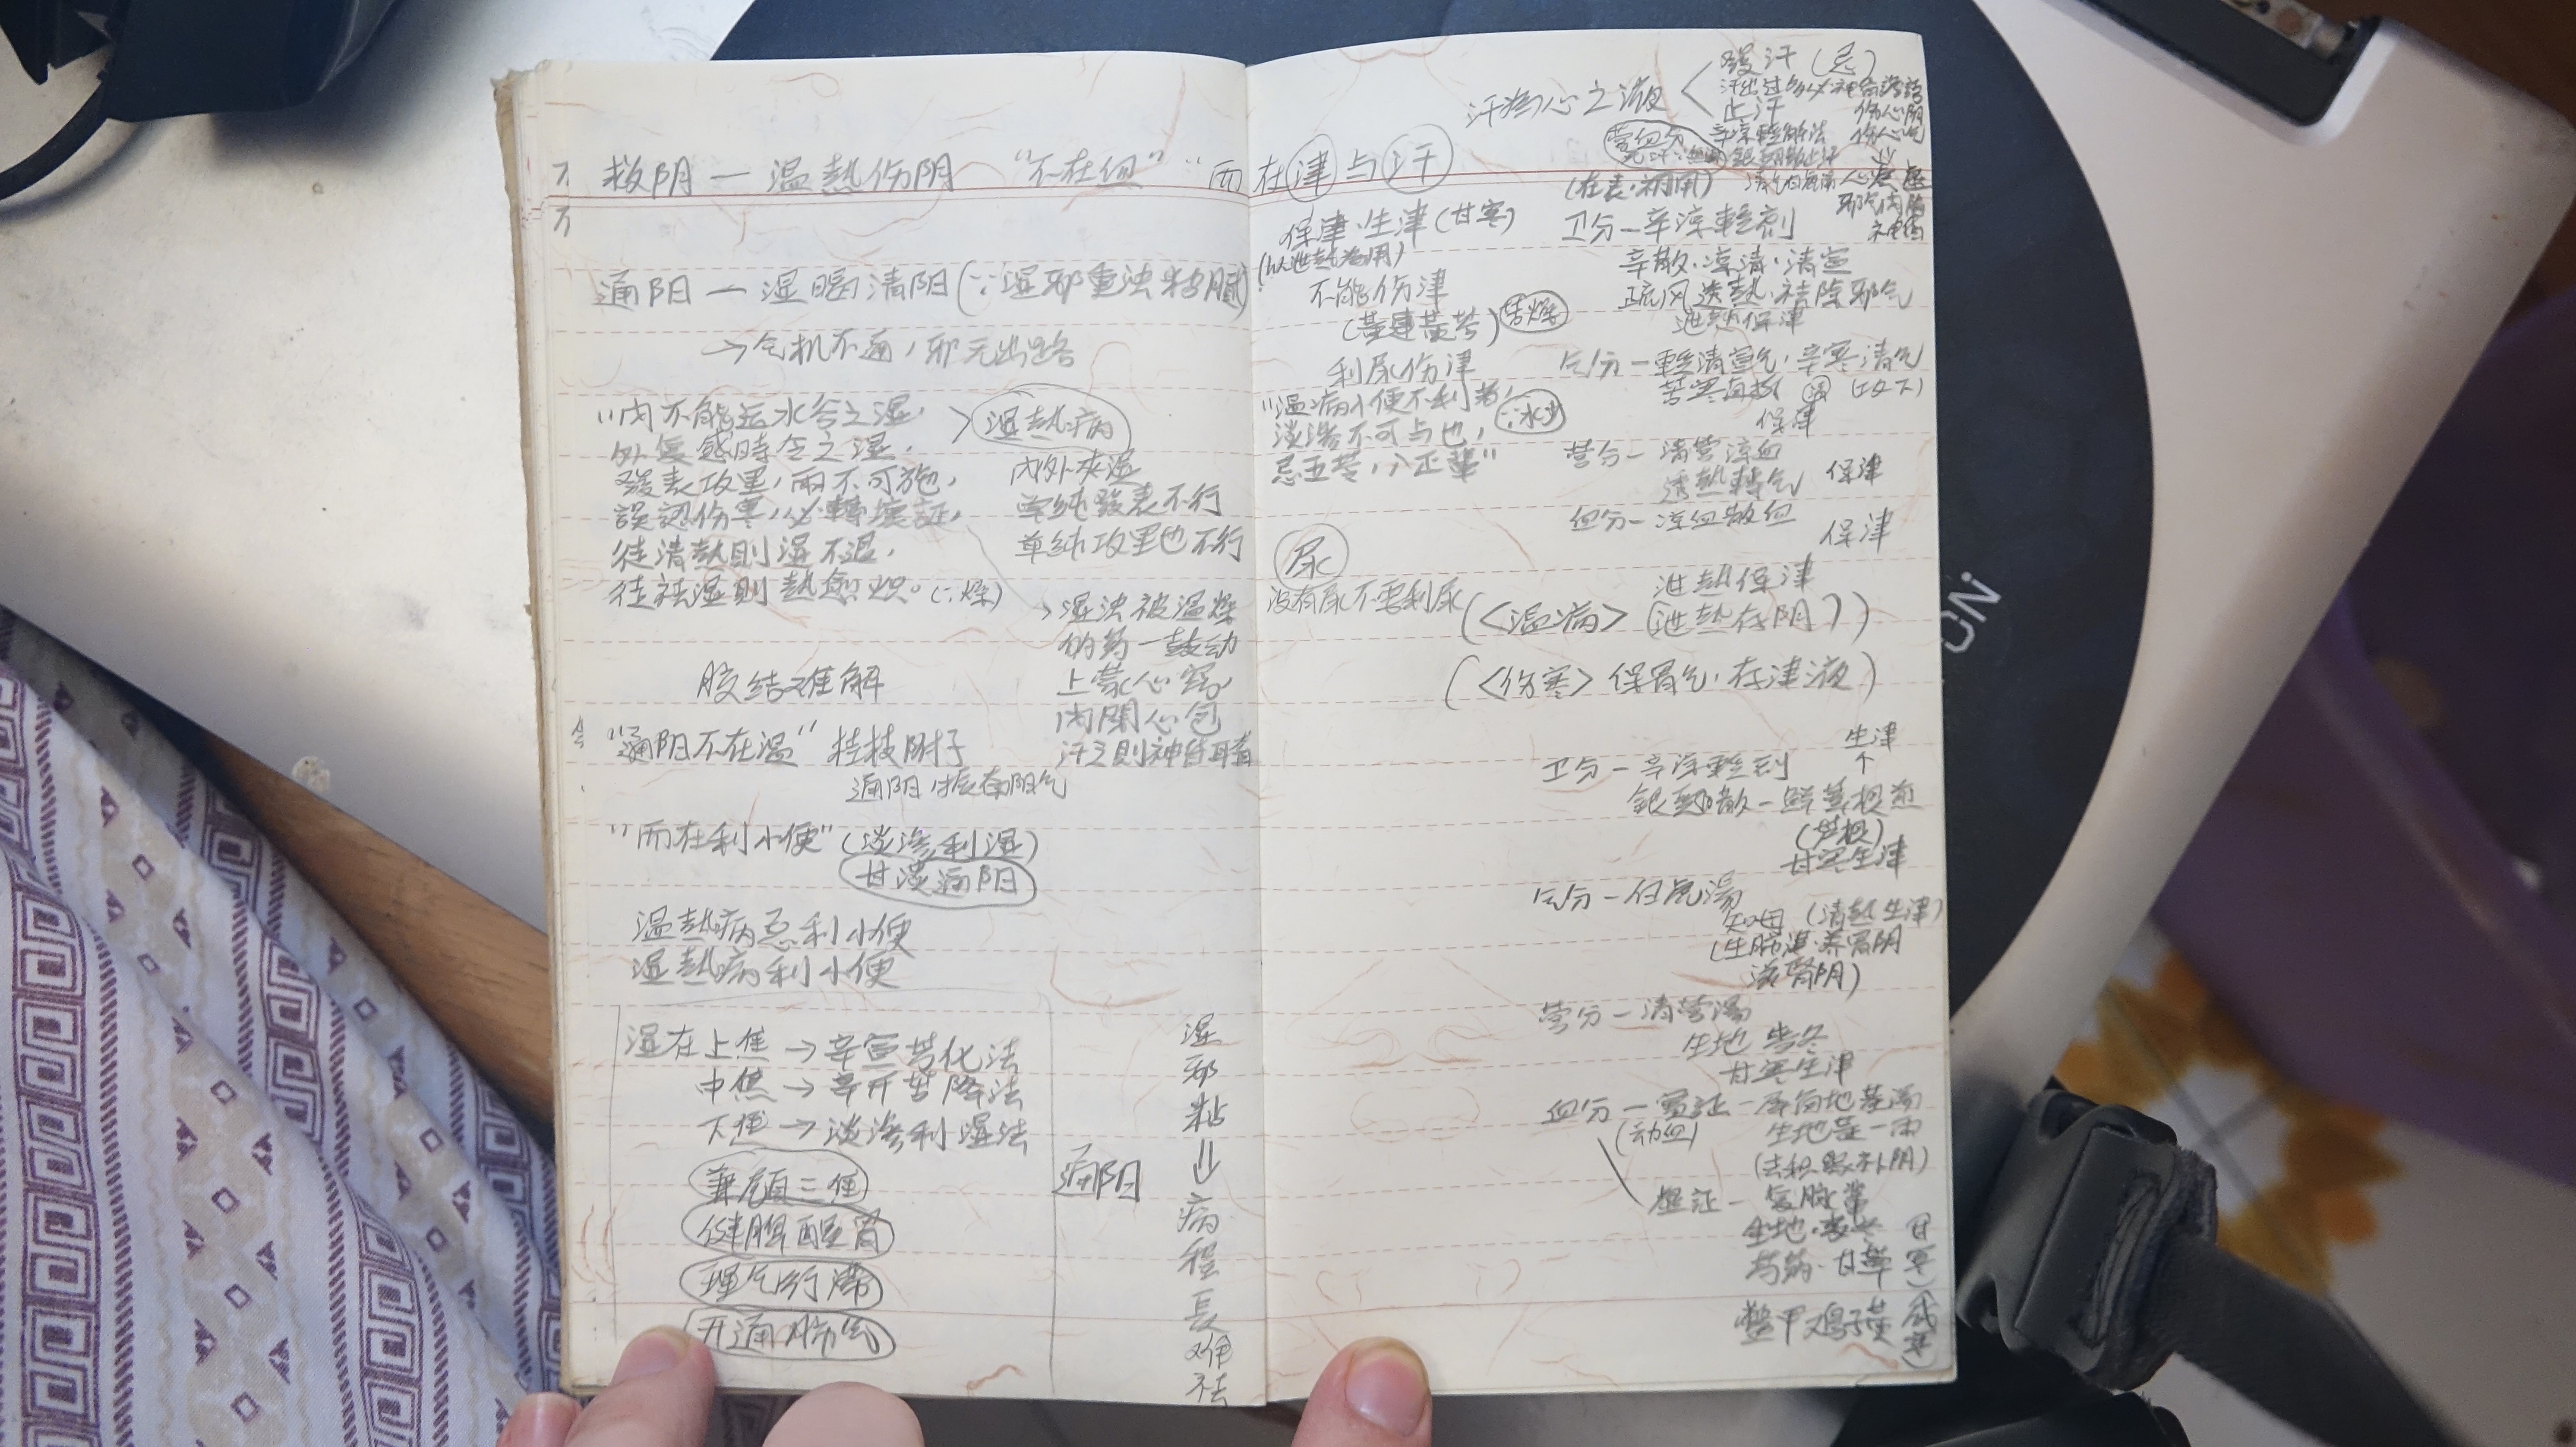 救阴一温熱伤阴 "不在血" "而在津与汗
通阳一湿遏清阳(∵湿邪重浊粘腻)
→气机不通,邪无出路
"内不能运水谷之湿,
外复感時令之湿,
發表攻里,兩不可施,
誤認伤寒,必轉壞証,
徒清热則湿不退,
徒祛湿則熱愈炽。(∵燥)
> 湿热病
内外夹湿
单纯發表不行
单纯攻里也不行
→湿浊被温燥
的药一鼓动
上蒙心窍,
内閉心包
汗之則神昏耳聋
胶结难解
"通阳不在温" 桂枝附子
通阳,振奋阳气
"而在利小便"(淡渗利湿)
甘淡通阳
温熱病忌利小便
湿熱病利小便
湿在上焦→辛宣芳化法
中焦→辛开苦降法
下焦→淡渗利湿法
兼顧二焦
健脾醒胃
理气行滞
开通肺气
通阳
湿邪粘⇓病程長难祛
汗為心之液 <
發汗 (忌)
汗出过多必神昏谵語
止汗
伤心阴
伤心气
营血分
辛凉輕解法
(在表·初用)
保津·生津(甘寒)
(以泄熱為用)
不能伤津
(黄連黄芩) 苦燥
利尿伤津
"温病小便不利者,
淡渗不可与也, ∵水少
忌五苓,八正輩"
尿
没有尿不要利尿
卫分一辛凉輕剂
辛散·凉清·清宣
疏风透熱·祛除邪气
泄熱保津
气分一輕清宣气·辛寒清气
苦寒直折 (攻下)
保津
营分一清营凉血
透熱轉气 保津
血分一凉血散血
保津
泄热保津
(<温病> 泄熱存阴)
(<伤寒> 保胃气·存津液)
生津
卫分一辛凉輕剂
銀翹散一鲜葦根煎
(芦根)
甘寒生津
气分一白虎湯
知母 (清熱生津)
(生肺津·养胃阴
滋腎阴)
营分一清营湯
生地 麦冬
甘寒生津
血分一實証一犀角地黄湯
(动血) 生地黄一兩
(去积聚补阴)
虚証一复脉湯
生地·麦冬
芍药·甘草 甘寒
鱉甲 鸡子黄 (咸寒)